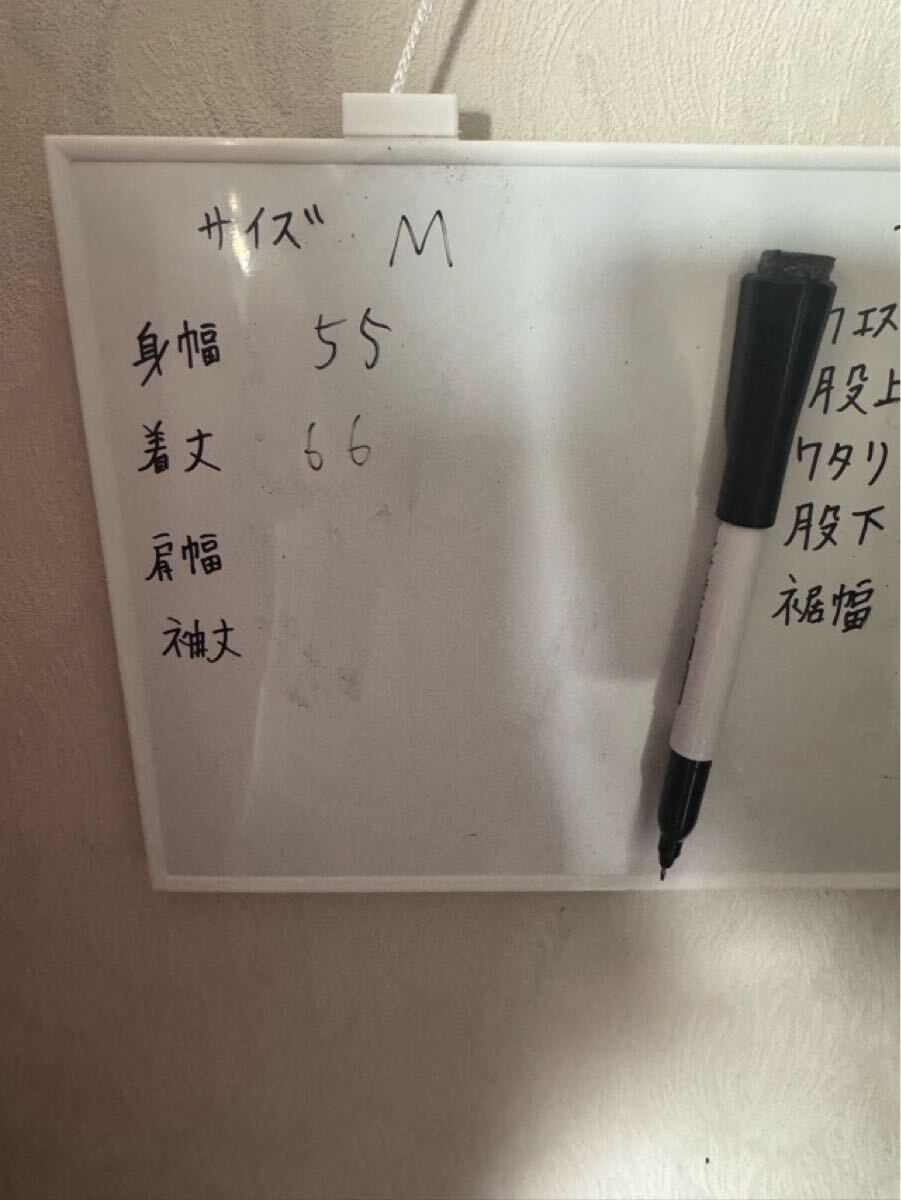 サイズ M
身幅 55
着丈 66
肩幅
袖丈
股上
ワタリ
股下
裾幅